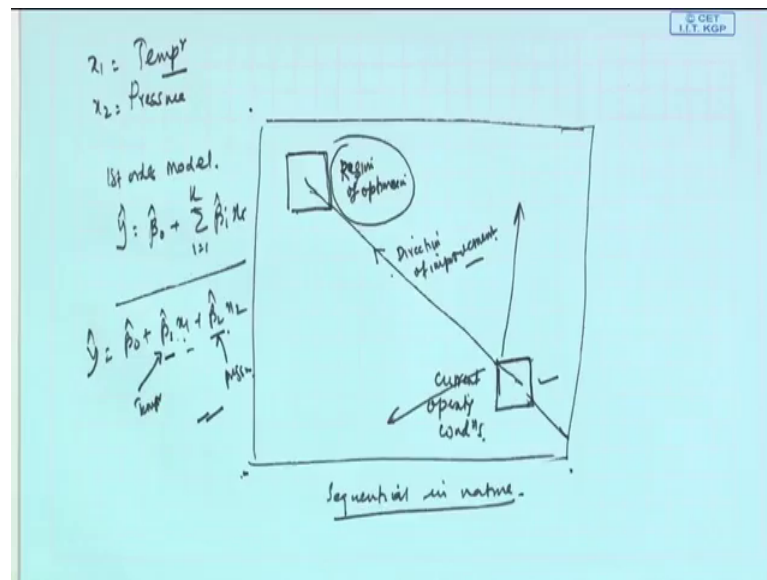 © CET
I.I.T. KGP
x₁ = Tempʳ
x₂ = Pressure
1st order model.
ŷ = β̂₀ + Σ β̂ᵢ xᵢ
k
i=1
ŷ = β̂₀ + β̂₁ x₁ + β̂₂ x₂
Tempʳ
Region
of optimum
Direction
of improvement.
Current
operatg
condⁿs.
Sequential in nature.